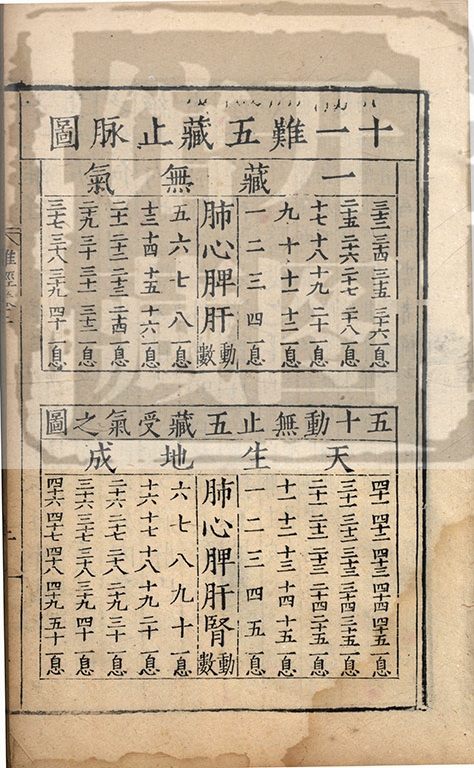 十一難五藏止脈圖
一藏無氣
三十三三十四三十五三十六一息
二十五二十六二十七二十八一息
十七十八十九二十一息
九十十一十二一息
一二三四一息
肺心脾肝動數
五六七八一息
十三十四十五十六一息
二十一二十二二十三二十四一息
二十九三十三十一三十二一息
三十七三十八三十九四十一息
五十動無止五藏受氣之圖
天生地成
四十一四十二四十三四十四四十五一息
三十一三十二三十三三十四三十五一息
二十一二十二二十三二十四二十五一息
十一十二十三十四十五一息
一二三四五一息
肺心脾肝腎動數
六七八九十一息
十六十七十八十九二十一息
二十六二十七二十八二十九三十一息
三十六三十七三十八三十九四十一息
四十六四十七四十八四十九五十一息